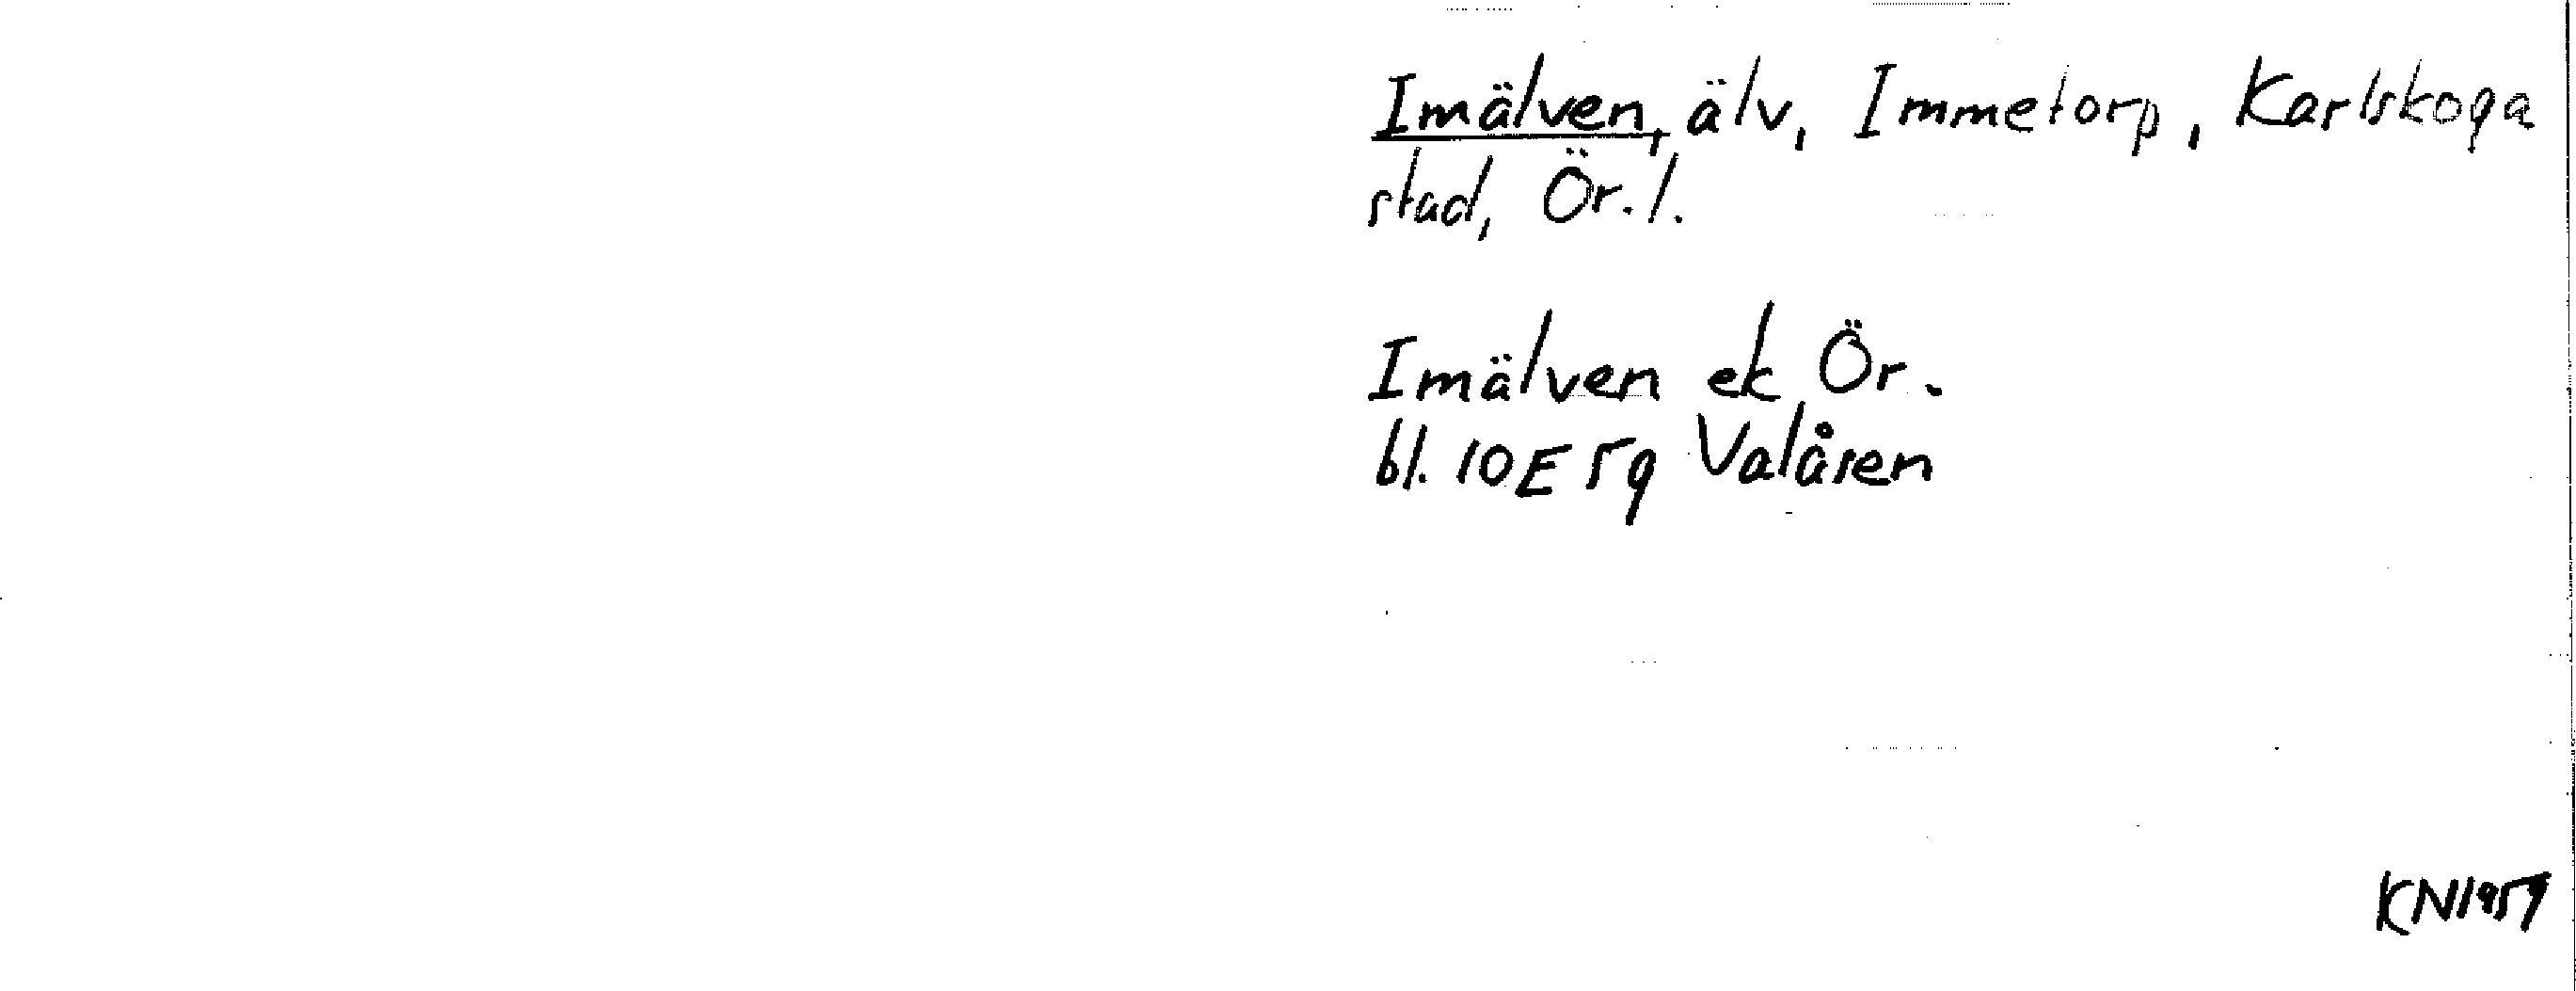 Imälven, älv, Immetorp, Karlskoga
stad, Ör. l.
Imälven ek Ör.
bl. 10E 5g Valåsen
KN1957